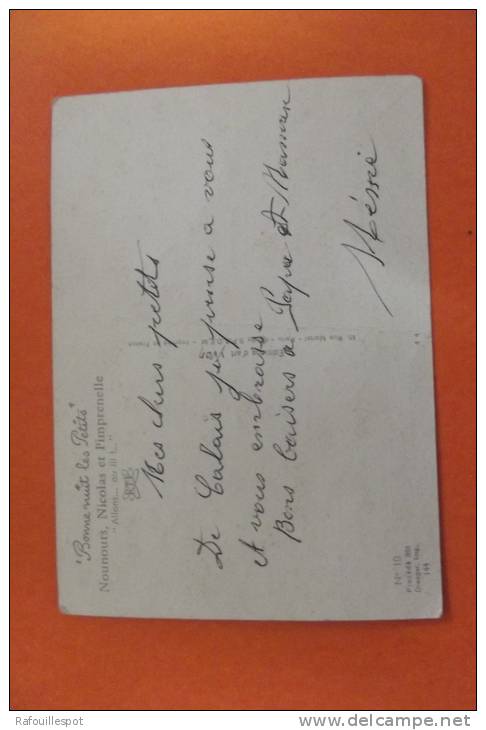 "Bonne nuit les Petits"
Nounours, Nicolas et Pimprenelle
"Allons... au lit !..."
Mes chers petits
De Calais je pense a vous
et vous embrasse
Bons baisers a Papa et Maman
N° 10
144
Rafouillespot
www.delcampe.net